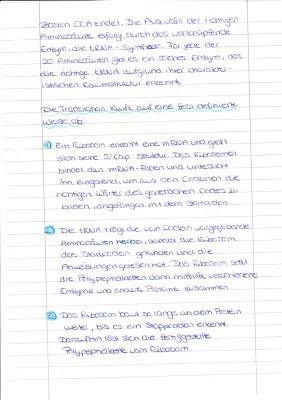 basen CCA endet. Die Auswahl der richtigen
Aminosäure erfolgt durch das verknüpfende
Enzym, die tRNA-Synthese. Für jede der
20 Aminosäuren gibt es ein solches Enzym, das
die richtige tRNA aufgrund ihrer charakter-
istischen Raumstruktur erkennt.
Die Translation läuft auf eine fest definierte
Weise ab.
1) Ein Ribosom erkennt eine mRNA und greift
sich seine 5'Cap-Struktur. Das Ribosomen
bindet den mRNA-Faden und untersucht
ihn eingehend, um aus den
richtigen Wörter des genetischen Codes zu
bilden, angefangen mit dem Startcodon
2) Die tRNA trägt die vom Codon vorgegebene
Aminosäuren herbei, sobald die Ribosom
das Startcodon gefunden und die
Anweisungen gelesen hat. Das Ribosom setzt
die Polypeptidketten dann mithilfe verschiedener
Enzyme und sowie Proteine zusammen.
3) Das Ribosom baut so lange an dem Protein
weiter, bis es ein Stoppcodon erkennt.
Daraufhin löst sich die fertiggestellte
Polypeptidkette vom Ribosom